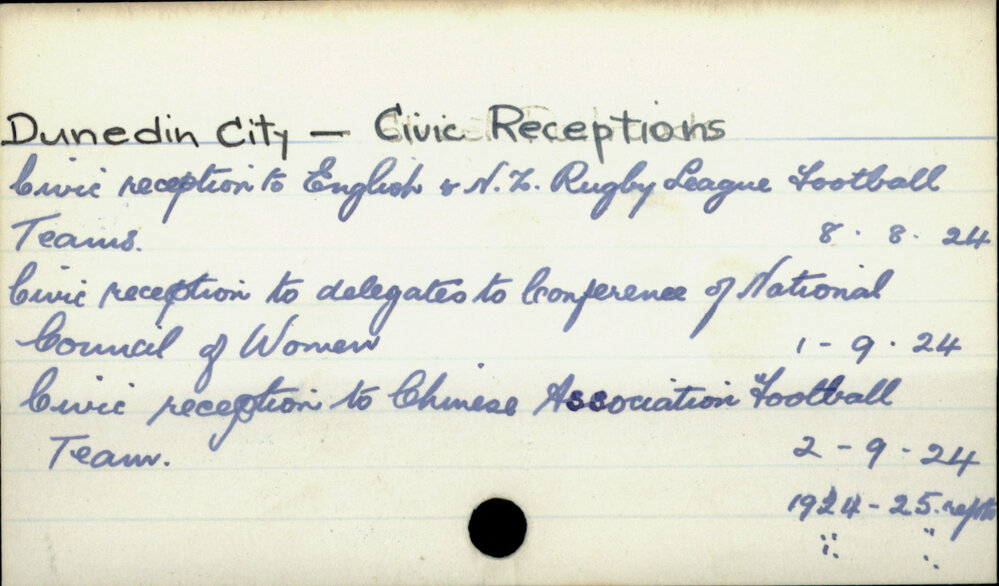 Dunedin City — Civic Receptions
Civic reception to English & N.Z. Rugby League Football
Teams. 8 . 8 . 24
Civic reception to delegates to Conference of National
Council of Women 1 - 9 . 24
Civic reception to Chinese Association Football
Team. 2 - 9 - 24
1924 - 25.
" "